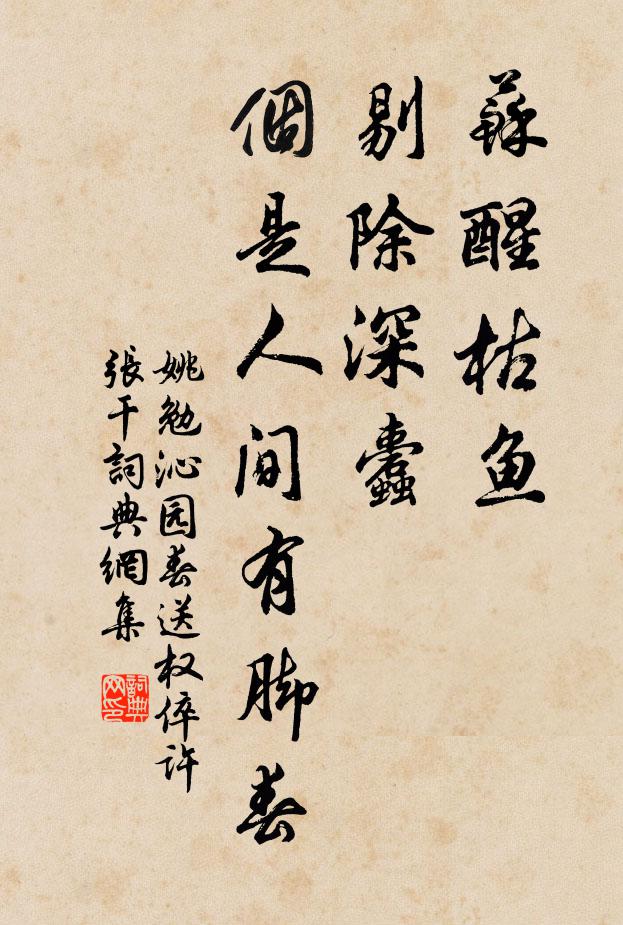 蘇醒枯鱼
剔除深蠹
個是人间有脚春
姚勉沁园春送权倅许
張干詞典網集
詞典网印